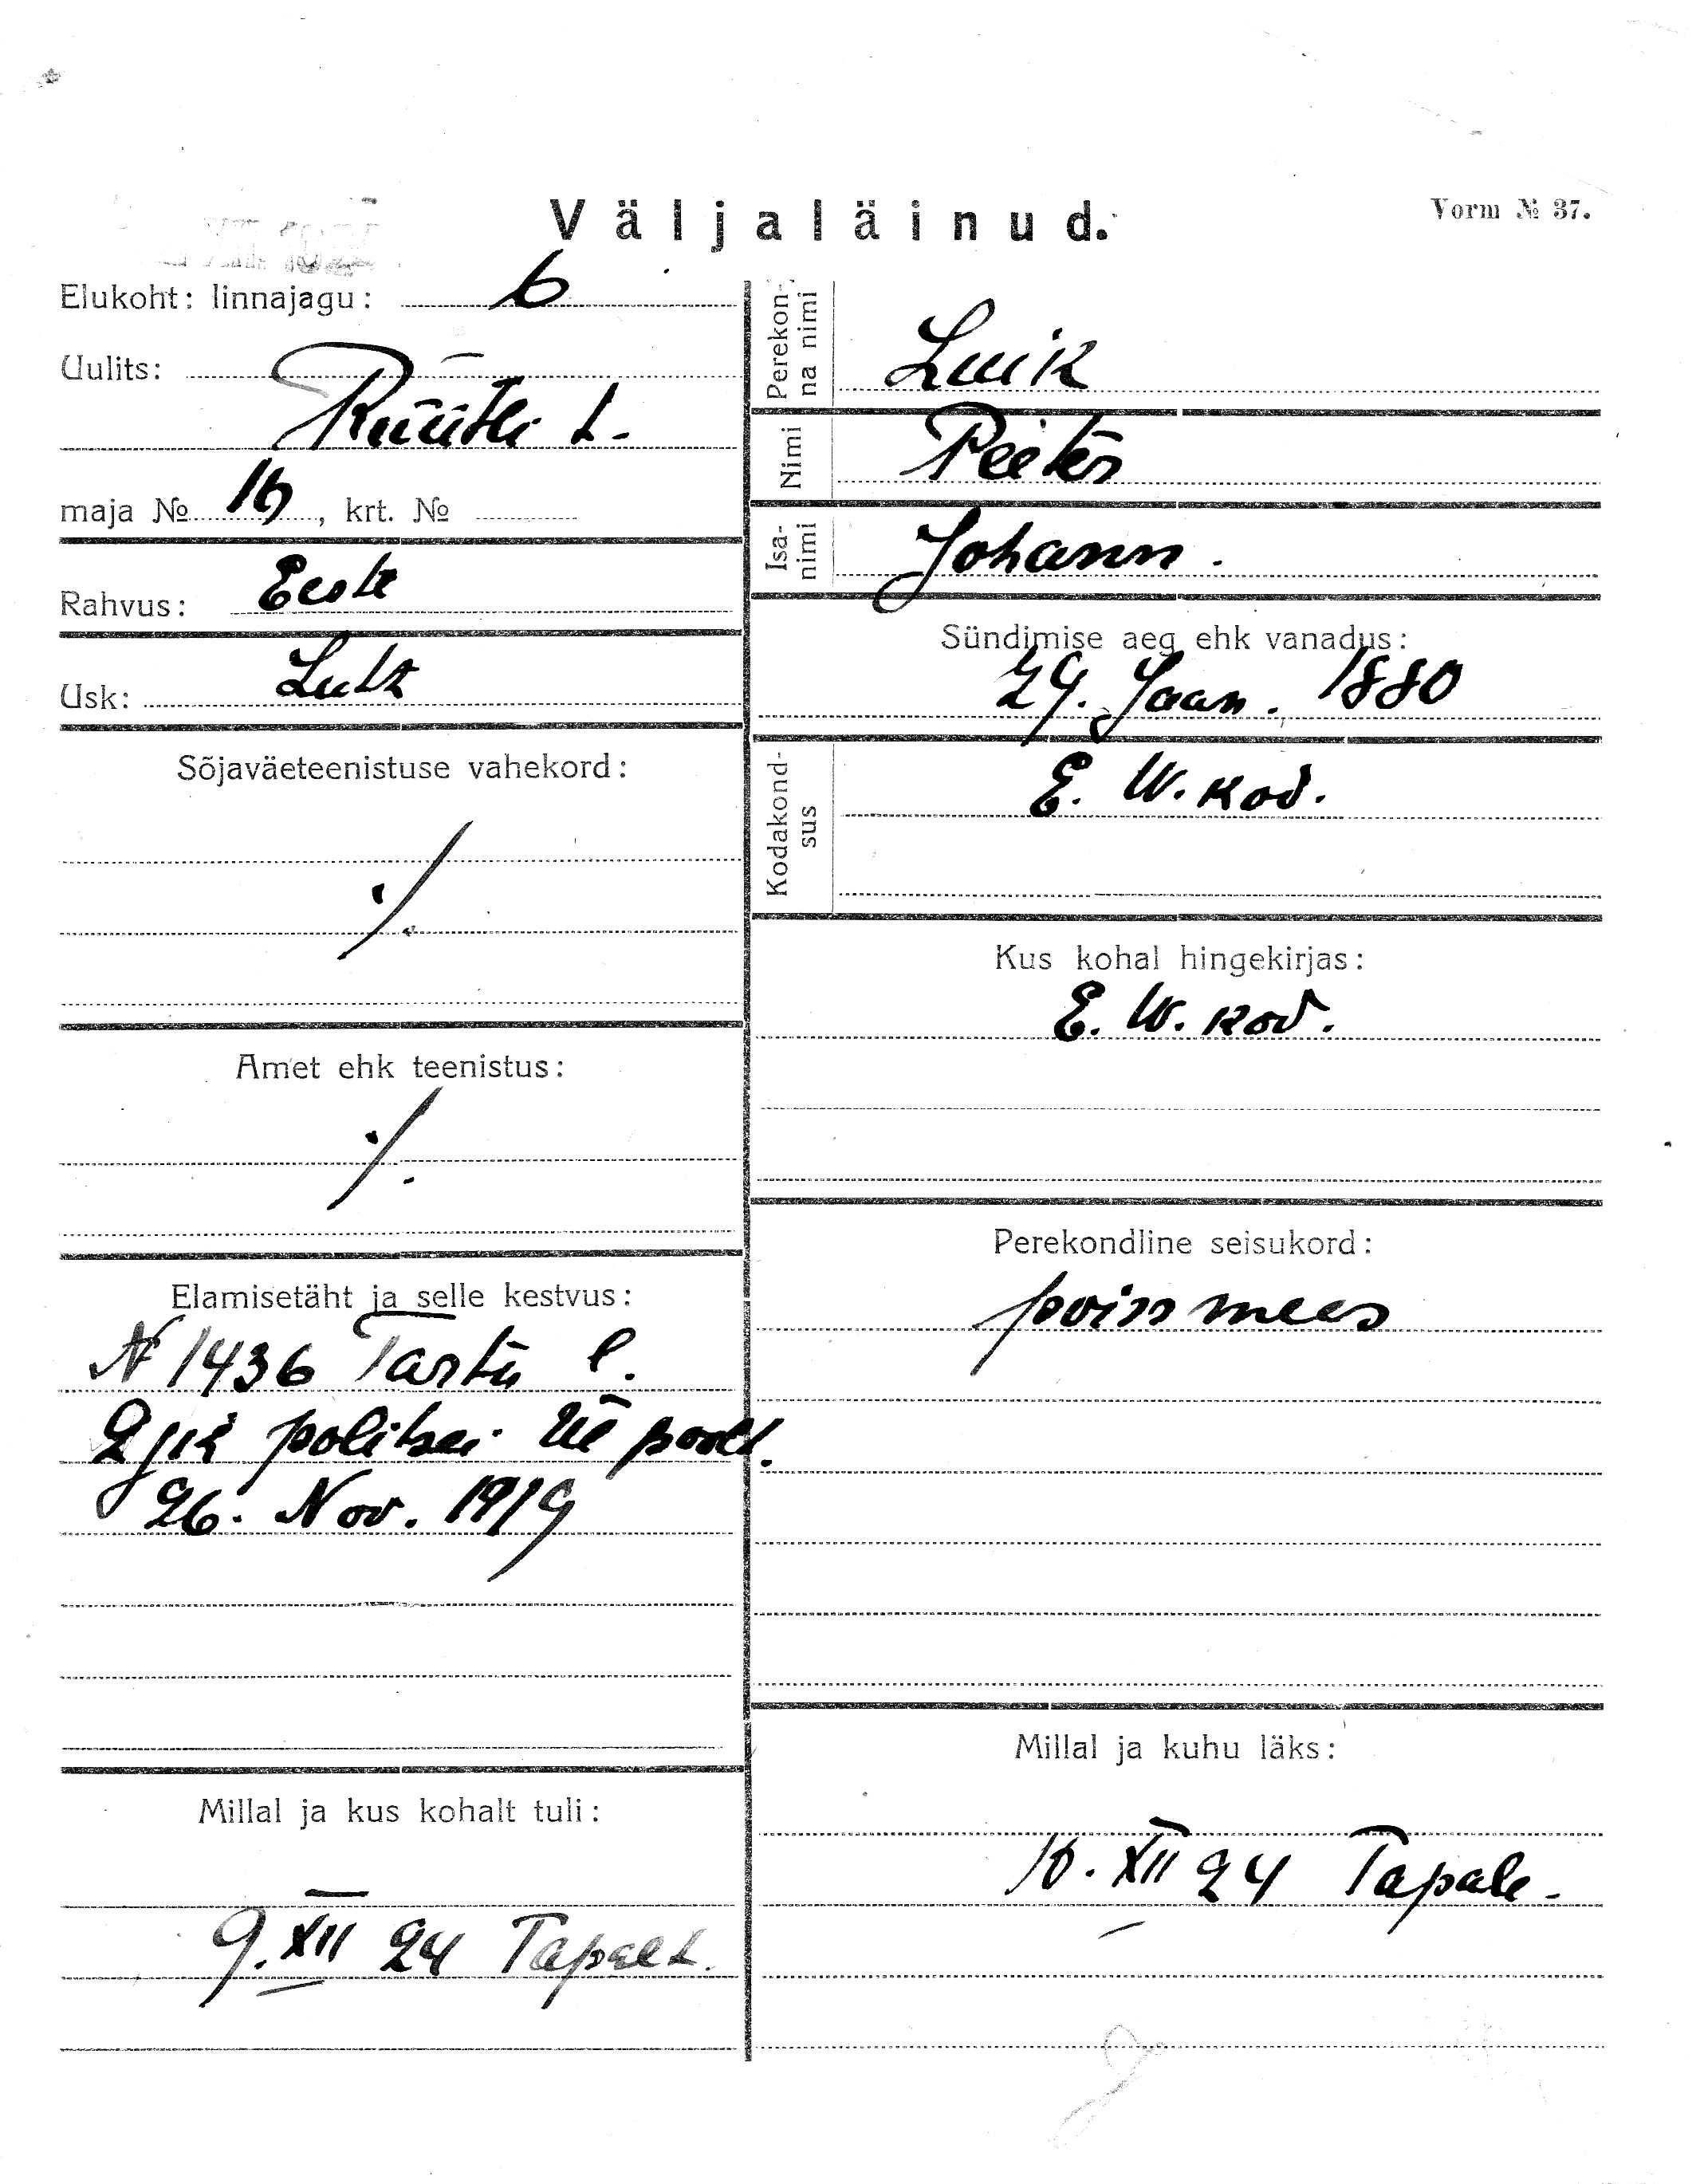 Väljaläinud.
Vorm № 37.
Elukoht: linnajagu: 6
Uulits:
Rüütli t.
maja № 16, krt. №
Rahvus: Eesti
Usk: Luth
Sõjaväeteenistuse vahekord:
./.
Amet ehk teenistus:
./.
Elamisetäht ja selle kestvus:
N 1436 Tartu l.
2 jsk politsei ül poolt.
26. Nov. 1919
Millal ja kus kohalt tuli:
9. XII 24 Tapalt.
Perekonna nimi Luik
Nimi Peeter
Isanimi Johann.
Sündimise aeg ehk vanadus:
29. Jaan. 1880
Kodakondsus E. W. kod.
Kus kohal hingekirjas:
E. W. kod.
Perekondline seisukord:
poissmees
Millal ja kuhu läks:
10. XII 24 Tapale.